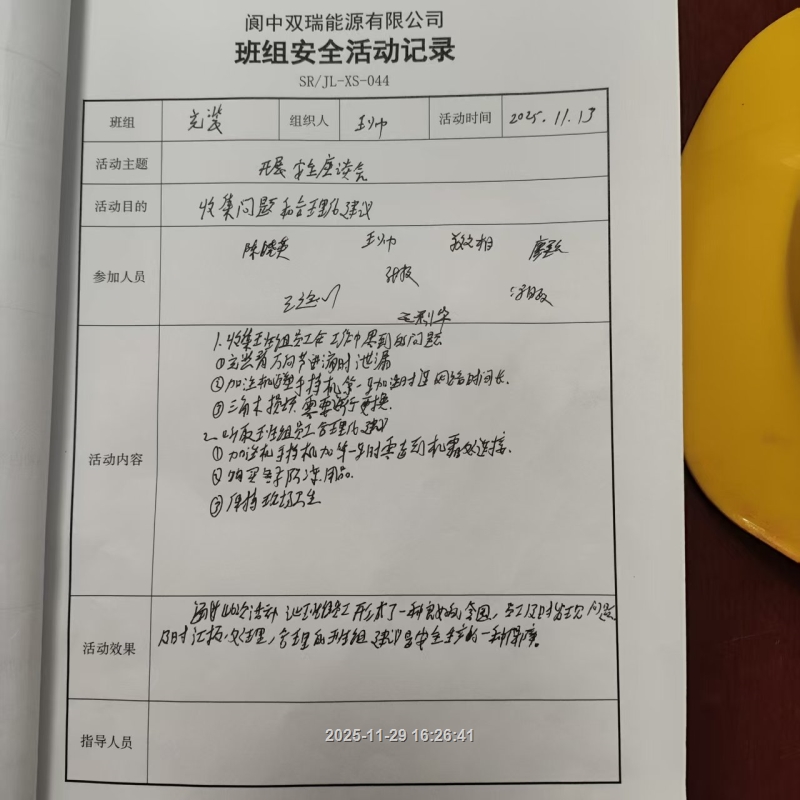 阆中双瑞能源有限公司
班组安全活动记录
SR/JL-XS-044
班组 充装 组织人 王帅 活动时间 2025.11.13
活动主题 开展安全座谈会
活动目的 收集问题和合理化建议
参加人员 陈晓英 王帅
王利华
活动内容
1.收集班组员工在工作中遇到的问题
①充装前万向节进液时泄漏
②加注机手持机第一次加注时 网络时间长.
③三角木损坏需要进行更换.
2.听取班组员工合理化建议
①加注机手持机加 时 机器 连接.
② 冬季防冻用品.
③保持现场卫生
活动效果 通过此次活动 让班组员工形成了一种良好的氛围,员工及时发现问题
及时汇报,处理,合理的班组建议是安全生产的一种保障。
指导人员
2025-11-29 16:26:41